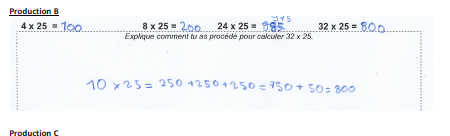 Production B
4 x 25 = 100 8 x 25 = 200 24 x 25 = 32 x 25 = 800
Explique comment tu as procédé pour calculer 32 x 25.
10 x 25 = 250 + 250 + 250 = 750 + 50 = 800
Production C